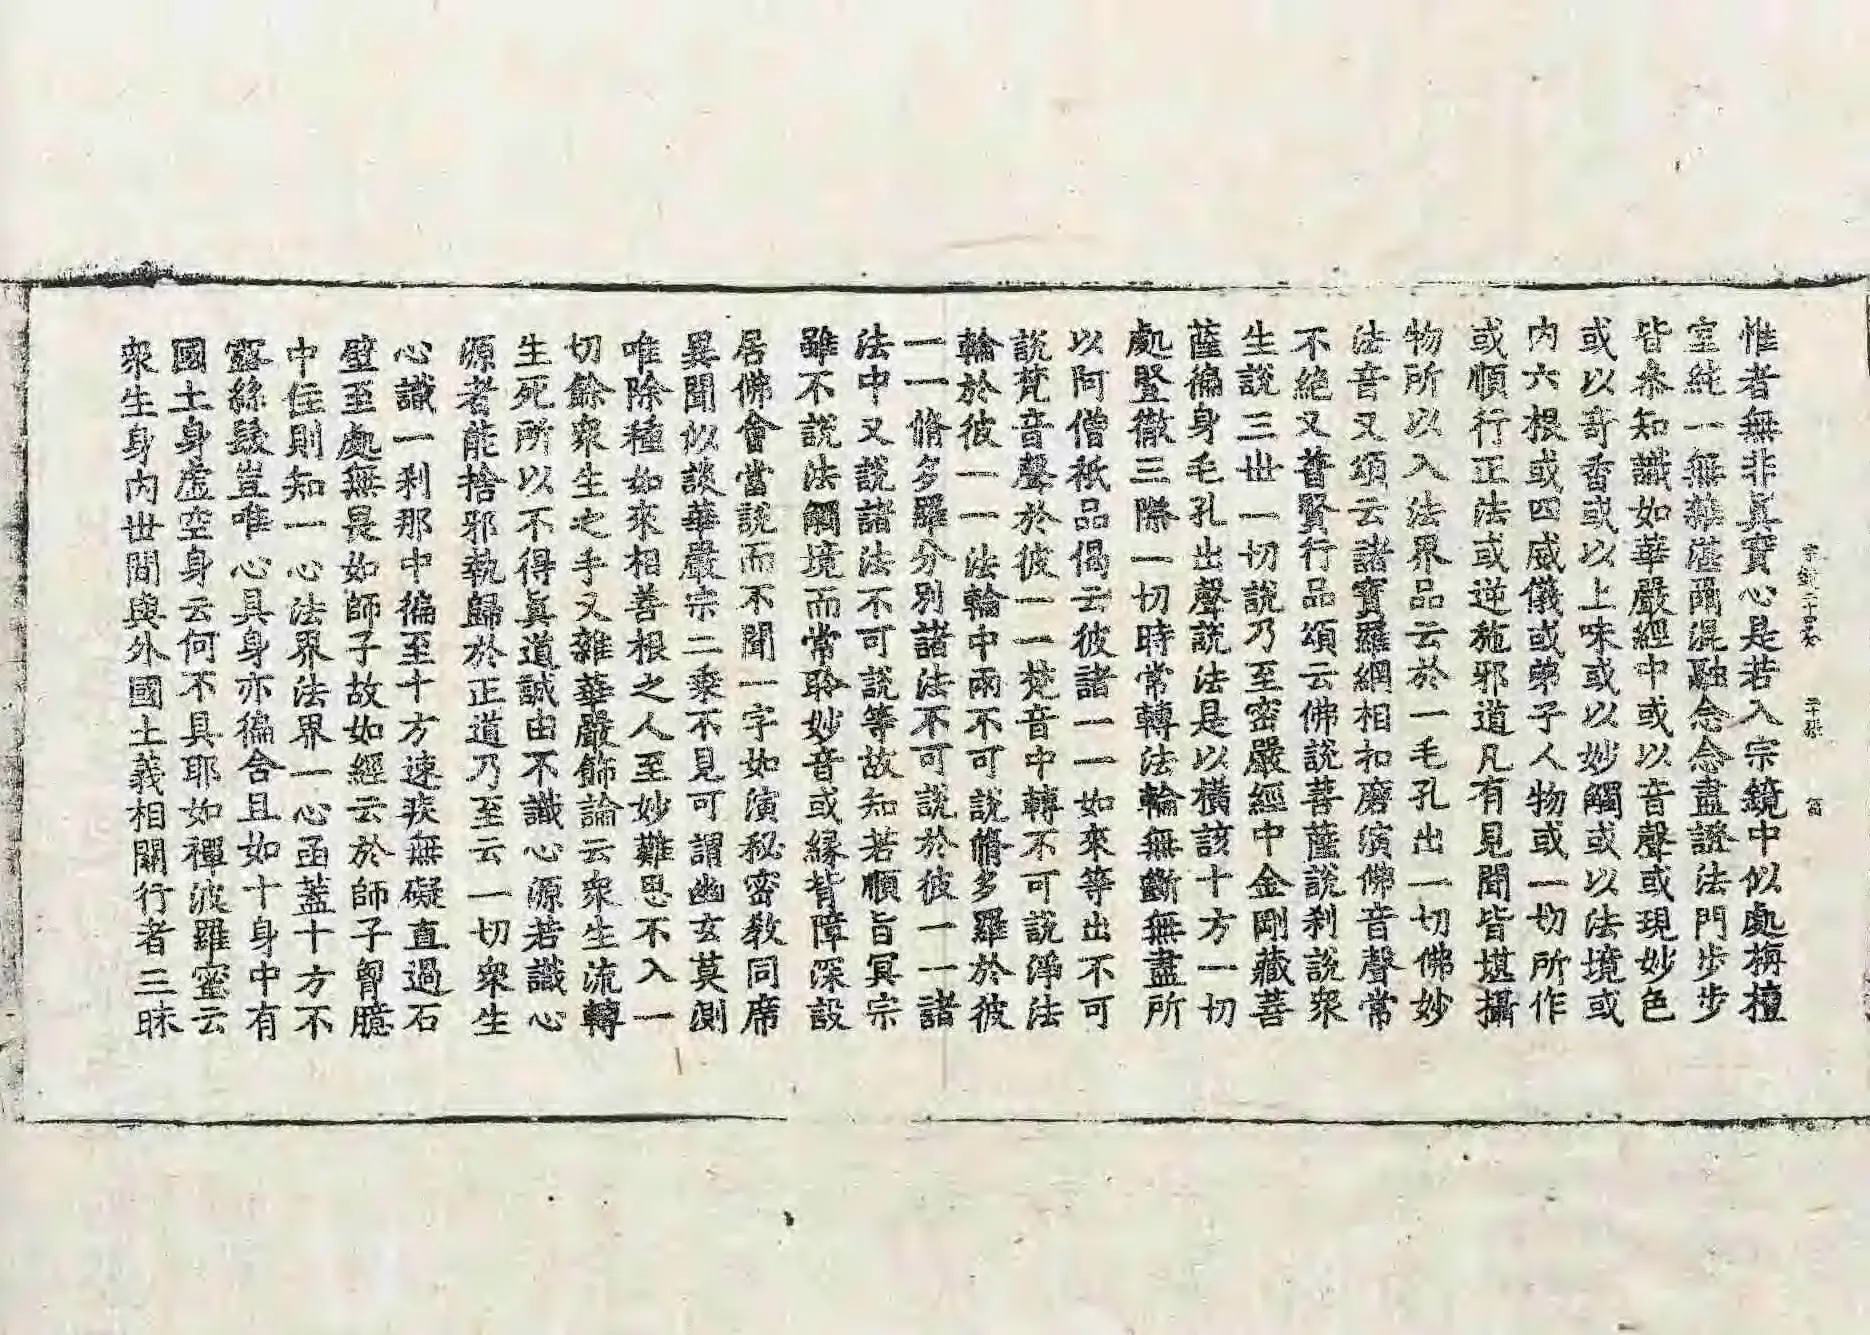 宗鏡二十四卷 二十張 箇
惟者無非眞實心是若入宗鏡中似處栴檀
室純一無雜湛爾混融念念盡證法門步步
皆叅知識如華嚴經中或以音聲或現妙色
或以奇香或以上味或以妙觸或以法境或
內六根或四威儀或弟子人物或一切所作
或順行正法或逆施邪道凡有見聞皆堪攝
物所以入法界品云於一毛孔出一切佛妙
法音又頌云諸寶羅網相扣磨演佛音聲常
不絶又普賢行品頌云佛說菩薩說刹說衆
生說三世一切說乃至密嚴經中金剛藏菩
薩徧身毛孔出聲說法是以橫該十方一切
處豎徹三際一切時常轉法輪無斷無盡所
以阿僧祇品偈云彼諸一一如來等出不可
說梵音聲於彼一一梵音中轉不可說淨法
輪於彼一一法輪中雨不可說脩多羅於彼
一一脩多羅分別諸法不可說於彼一一諸
法中又說諸法不可說等故知若順旨冥宗
雖不說法觸境而常聆妙音或緣背障深設
居佛會當說而不聞一字如演秘密教同席
異聞似談華嚴宗二乘不見可謂幽玄莫測
唯除種如來相善根之人至妙難思不入一
切餘衆生之手又雜華嚴飾論云衆生流轉
生死所以不得眞道誠由不識心源若識心
源者能捨邪執歸於正道乃至云一切衆生
心識一刹那中徧至十方速疾無礙直過石
壁至處無畏如師子故如經云於師子胷臆
中住則知一心法界法界一心函蓋十方不
露絲髮豈唯心具身亦徧含且如十身中有
國土身虛空身云何不具耶如禪波羅蜜云
衆生身內世間與外國土義相關行者三昧